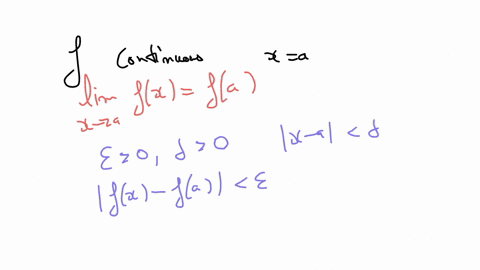 f continuous x=a
lim f(x) = f(a)
x→a
ε>0, δ>0 |x-a| < δ
|f(x) - f(a)| < ε